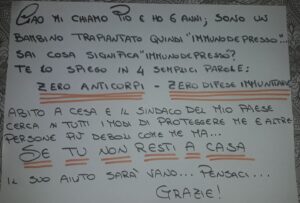 CIAO MI CHIAMO PIO E HO 6 ANNI; SONO UN
BAMBINO TRAPIANTATO QUINDI "IMMUNODEPRESSO"...
SAI COSA SIGNIFICA "IMMUNODEPRESSO"?
TE LO SPIEGO IN 4 SEMPLICI PAROLE:
ZERO ANTICORPI - ZERO DIFESE IMMUNITARIE
ABITO A CESA E IL SINDACO DEL MIO PAESE
CERCA IN TUTTI I MODI DI PROTEGGERE ME E ALTRE
PERSONE PIÙ DEBOLI COME ME MA...
SE TU NON RESTI A CASA
IL SUO AIUTO SARA' VANO... PENSACI...
GRAZIE!